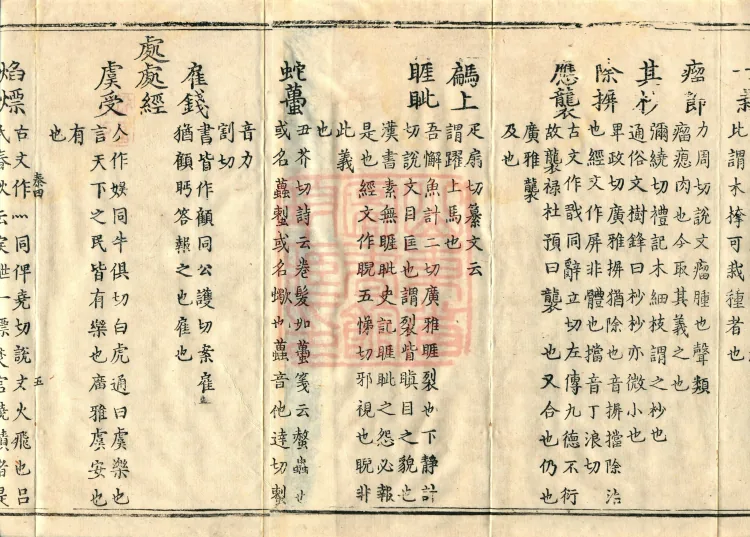 此謂木㨗可栽種者也
瘤節 力周切說文瘤腫也聲類
瘤瘜肉也今取其義之也
其杪 彌繞切禮記木細枝謂之杪也
通俗文樹鋒曰杪杪亦微小也
除摒 畢政切廣雅摒猶除也音摒擋除治
也經文作屏非體也擋音丁浪切
應襲 古文作戩同辭立切左傳九德不衍
故襲祿杜預曰襲也又合也仍也
廣雅襲
及也
騗上 疋扇切纂文云
謂躍上馬也
睚眦 吾懈魚計二切廣雅睚裂也下靜計
切說文目匡也謂裂眥瞋目之貌也
漢書素無睚眦史記睚眦之怨必報
是也經文作睨五悌切邪視也睨非
此義
也
蛇蠆 丑芥切詩云卷髮如蠆箋云螫蟲也
或名蠚蜇或名蠍也蠚音他達切蜇
音力
割切
雇錢 書皆作顧同公護切案雇
猶顧眄答報之也雇也
處處經
虞受 今作娛同牛俱切白虎通曰虞樂也
言天下之民皆有樂也廣雅虞安也
有
也
泰四 五
焰熛 古文作灬同俾堯切說文火飛也呂
氏春秋云突泄一熛焚宮燒積者是